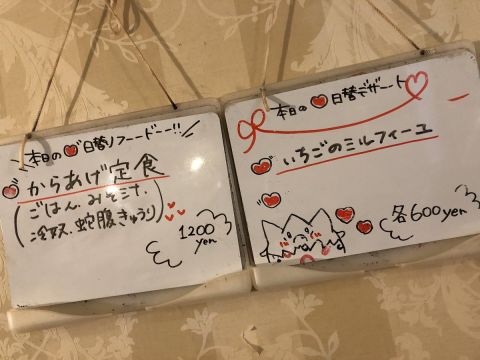 本日の日替りフード!!
からあげ定食
(ごはん.みそ汁.
冷奴.蛇腹きゅうり)
1200
yen
本日の日替デザート
いちごのミルフィーユ
各600yen